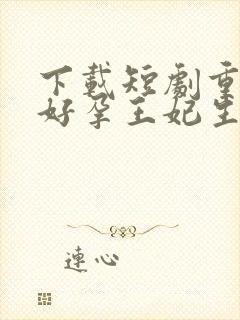 下載短劇重
好孕王妃生
連心